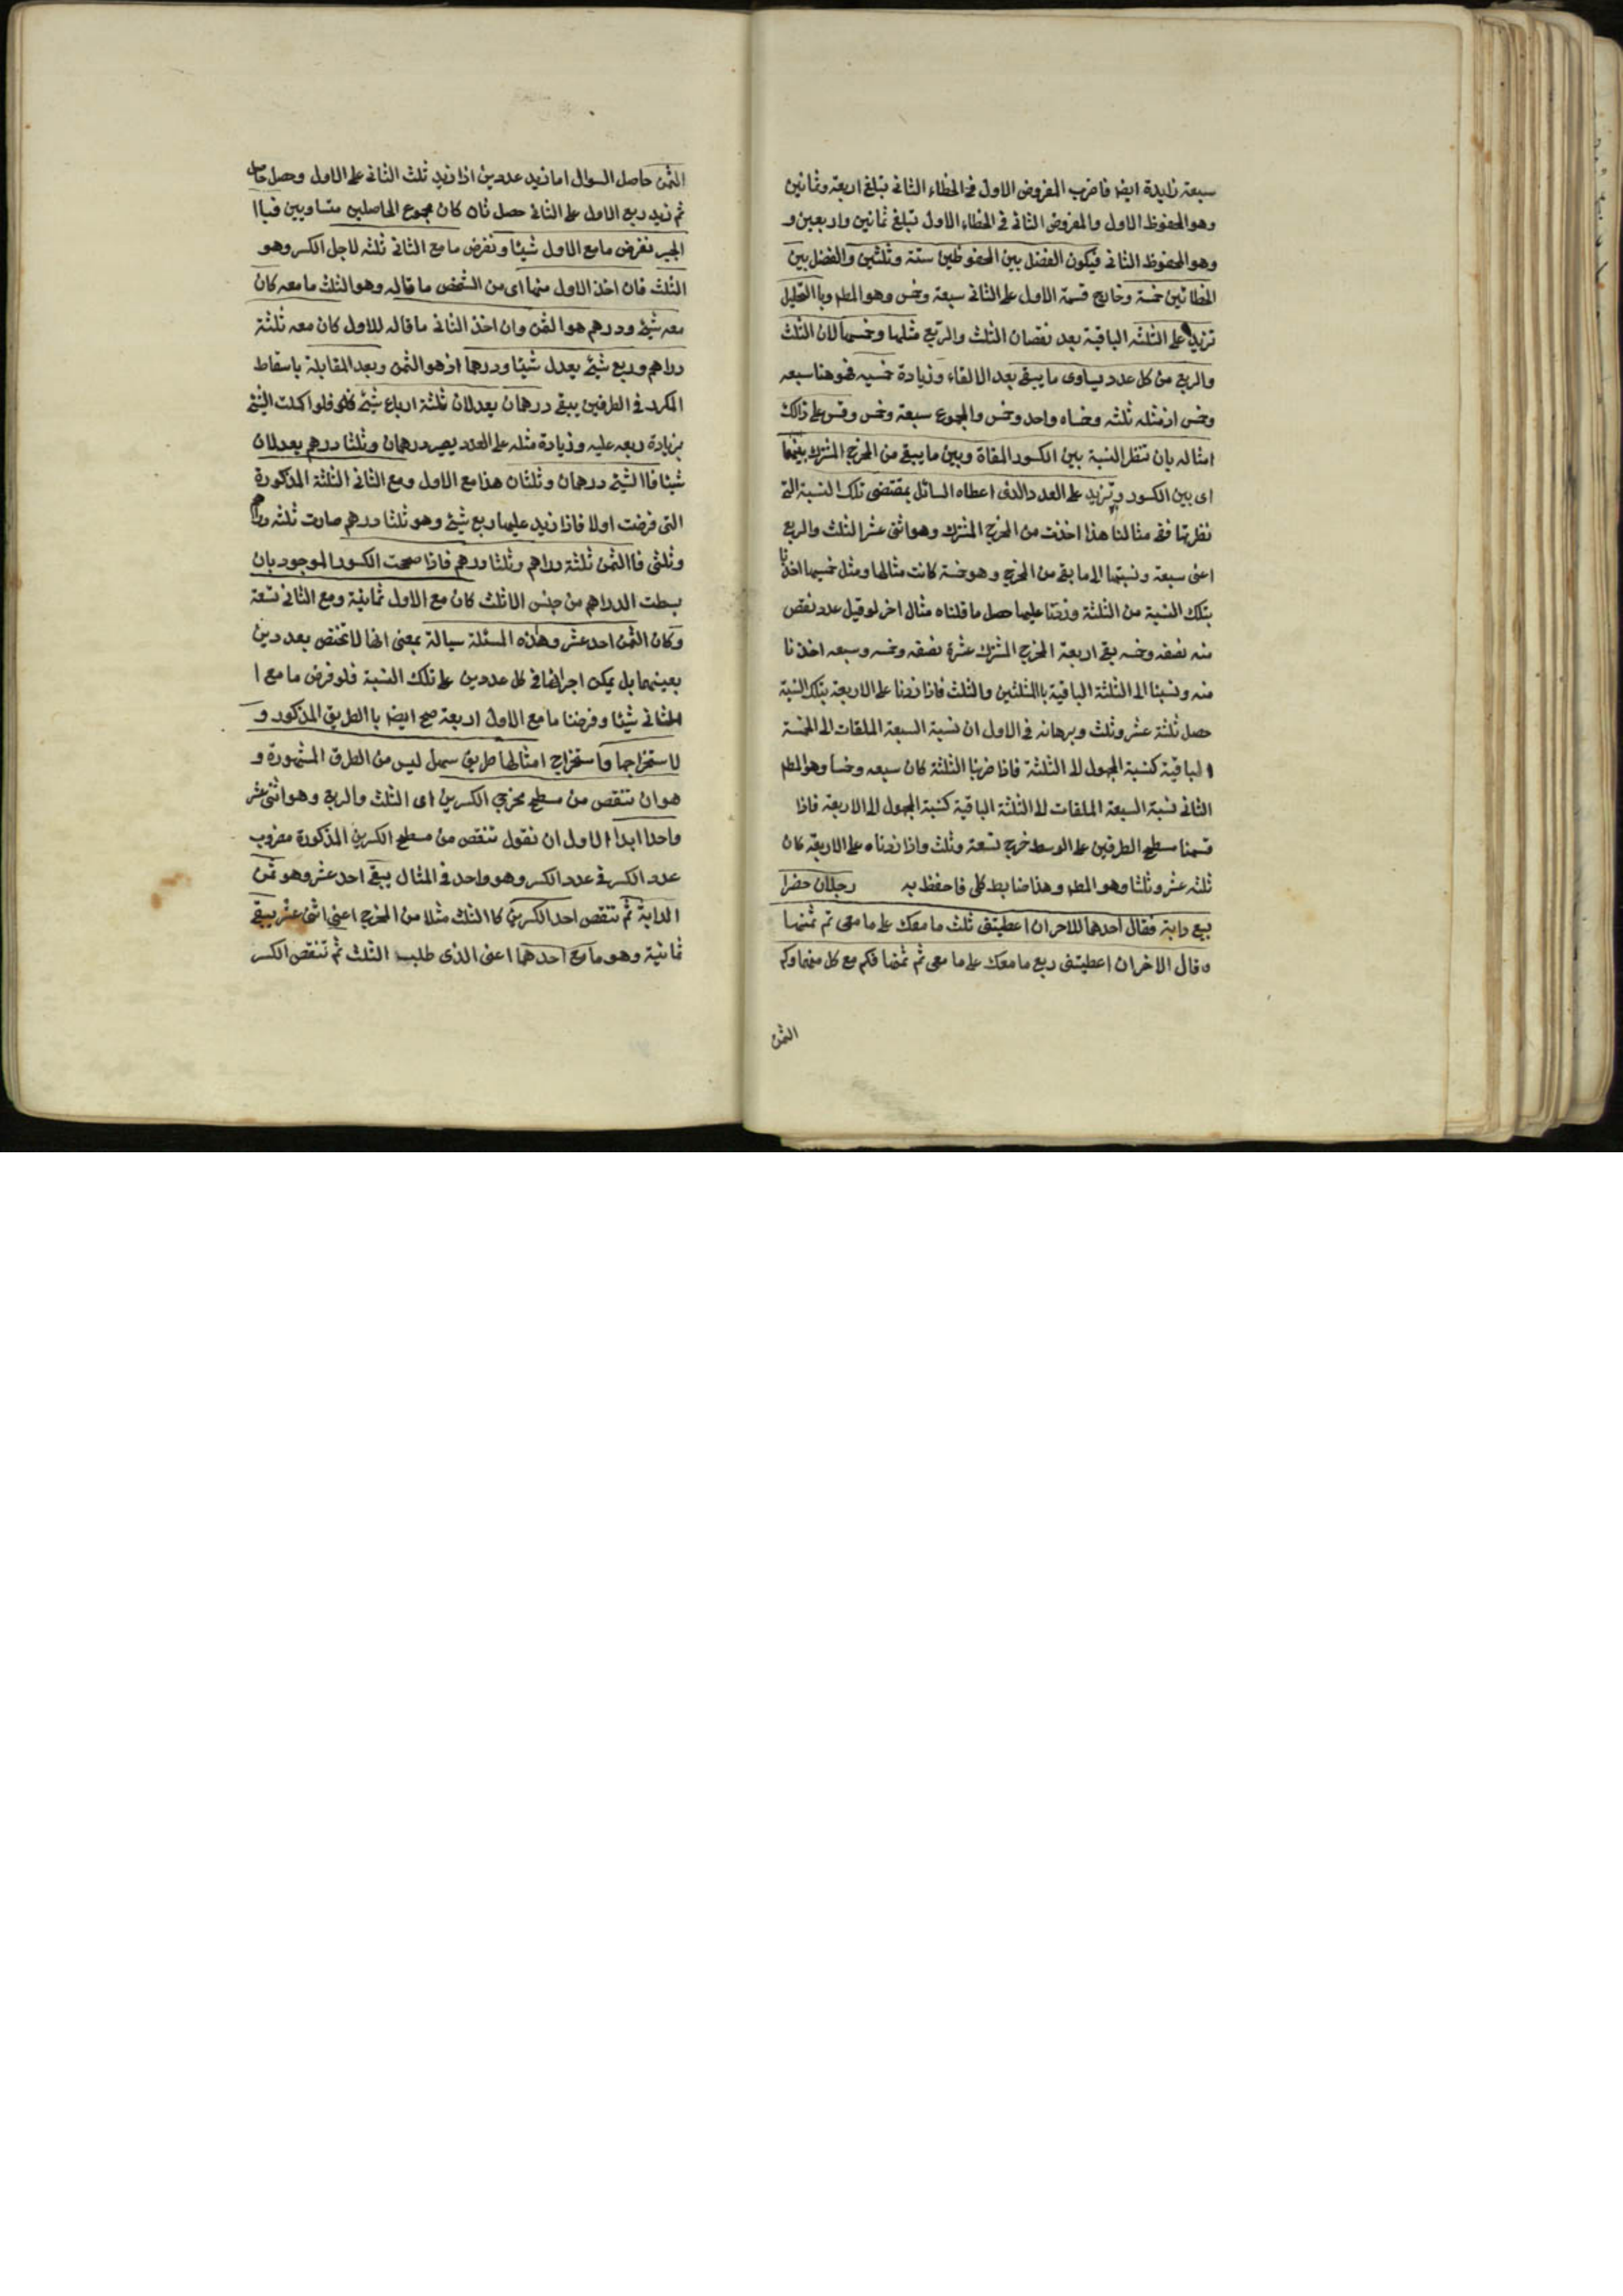 سبعة زايدة ايضا فاضرب المفروض الاول فى الخطاء الثانى تبلغ اربعة وثمانين
وهو المحفوظ الاول والمفروض الثانى فى الخطاء الاول تبلغ ثمانين واربعين و
وهو المحفوظ الثانى فيكون الفضل بين المحفوظين ستة وثلثين والفضل بين
الخطائين خمسة وخارج قسمة الاول على الثانى سبعة وخمس وهو المطم وبا التحليل
تزيد على الثلثه الباقية بعد نقصان الثلث والربع مثلها وخمسها لان الثلث
والربع من كل عدد يساوى ما يبقى بعد الالقاء وزيادة خمسيه فهو هنا سبعه
وخمس اذ مثله ثلثه وخمساه واحد وخمس والمجموع سبعة وخمس وقس على ذالك
امثاله بان تنظر النسبة بين الكسور الملقاة وبين ما يبقى من المخرج المشترك بينهما
اى بين الكسور وتزيد على العدد الذى اعطاه السائل بمقتضى تلك النسبة التى
نظرتها ففى مثالنا هذا اخذت من المخرج المشترك وهو اثنى عشر الثلث والربع
اعنى سبعة ونسبتها الى ما بقى من المخرج وهو خمسة كانت مثالها ومثل خمسيها اخذنا
بتلك النسبة من الثلثة وزدنا عليها حصل ما قلناه مثال اخر لو قيل عدد نقص
منه نصفه وخمسه بقى اربعة المخرج المشترك عشرة نصفه وخمسه وسبعه اخذنا
منه ونسبنا الى الثلثة الباقية باالمثلثين والثلث فاذا زدنا على الاربعة بتلك النسبة
حصل ثلثة عشر وثلث وبرهانه فى الاول ان نسبة السبعة الملقات الى الخمسة
الباقية كنسبة المجهول الى الثلثة فاذا ضربنا الثلثة كان سبعه وخمسا وهو المطم
الثانى نسبة السبعة الملقات الى الثلثة الباقية كنسبة المجهول الى الاربعة فاذا
قسمنا مسطح الطرفين على الوسط خرج تسعة وثلث واذا زدناه على الاربعة كان
ثلثه عشر وثلثا وهو المطم وهذا ضابط كلى فاحفظ به رجلان حضرا
بيع دابة فقال احدهما للاخر ان اعطيتنى ثلث ما معك على ما معى تم ثمنها
وقال الاخر ان اعطيتنى ربع ما معك على ما معى تم ثمنها فكم مع كل منهما وكم
الثمن
الثمن حاصل السوال اما نزيد عددين اذا زيد ثلث الثانى على الاول وحصل حاصل
ثم زيد ربع الاول على الثانى حصل ثان كان مجموع الحاصلين متساويين فباا
الجبر نفرض ما مع الاول شيئا ونفرض ما مع الثانى ثلثه لاجل الكسر وهو
الثلث فان اخذ الاول منهما اى من الشخص ما قاله وهو الثلث ما معه كان
معه شئ ودرهم هو الثمن وان اخذ الثانى ما قاله للاول كان معه ثلثة
دراهم وربع شئ يعدل شيئا ودرهما اذ هو الثمن وبعد المقابلة باسقاط
المكرر فى الطرفين يبقى درهمان يعدلان ثلثة ارباع شئ فلو اكملت الشئ
بزيادة ربعه عليه وزيادة مثله على العدد يصير درهمان وثلثا درهم يعدلان
شيئا فاا لشئ درهمان وثلثان هذا مع الاول ومع الثانى الثلثة المذكورة
التى فرضت اولا فاذا زيد عليها ربع شئ وهو ثلثا درهم صارت ثلثه دراهم
وثلثى فاا لثمن ثلثة دراهم وثلثا درهم فاذا صححت الكسور الموجود بان
بسطت الدراهم من جنس الاثلث كان مع الاول ثمانية ومع الثانى تسعة
وكان الثمن احد عشر وهذه المسئلة سيالة بمعنى انها لا تختص بعددين
بعينهما بل يمكن اجرائها فى كل عددين على تلك النسبة فلو فرض ما مع ا
الثانى شيئا وفرضنا ما مع الاول اربعة صح ايضا باا لطريق المذكور و
لاستخراجها واستخراج امثالها طريق سهل ليس من الطرق المشهورة و
هو ان تنقص من مسطح مخرجى الكسرين اى الثلث والربع وهو اثنى عشر
واحدا ابدا الاول ان نقول تنقص من مسطح الكسرين المذكورة مضروب
عدد الكسر فى عدد الكسر وهو واحد فى المثال يبقى احد عشر وهو ثمن
الدابة ثم تنقص احد الكسرين كاا لثلث مثلا من المخرج اعنى اثنى عشر يبقى
ثمانية وهو ما مع احدهما اعنى الذى طلب الثلث ثم تنقص الكسر